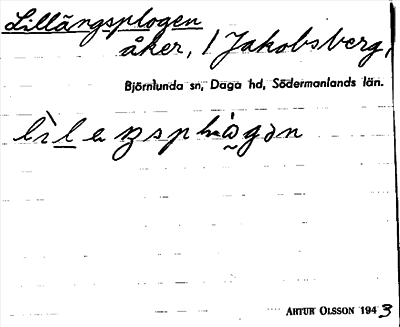 Lillängsplogen
åker, / Jakobsberg,
Björnlunda sn, Daga hd, Södermanlands län.
ARTUR OLSSON 1943